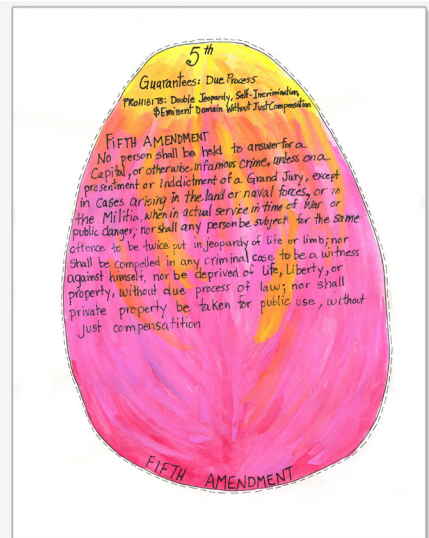 5th
Guarantees: Due Process
PROHIBITS: Double Jeopardy, Self-Incrimination,
& Eminent Domain Without Just Compensation
FIFTH AMENDMENT
No person shall be held to answer for a
Capital, or otherwise infamous crime, unless on a
presentment or inddictment of a Grand Jury, except
in Cases arising in the land or naval forces, or in
the Militia, when in actual service in time of War or
public danger; nor shall any person be subject for the same
offence to be twice put in jeopardy of life or limb; nor
shall be compelled in any criminal case to be a witness
against himself, nor be deprived of life, liberty, or
property, without due process of law; nor shall
private property be taken for public use, without
just compensatition
FIFTH AMENDMENT